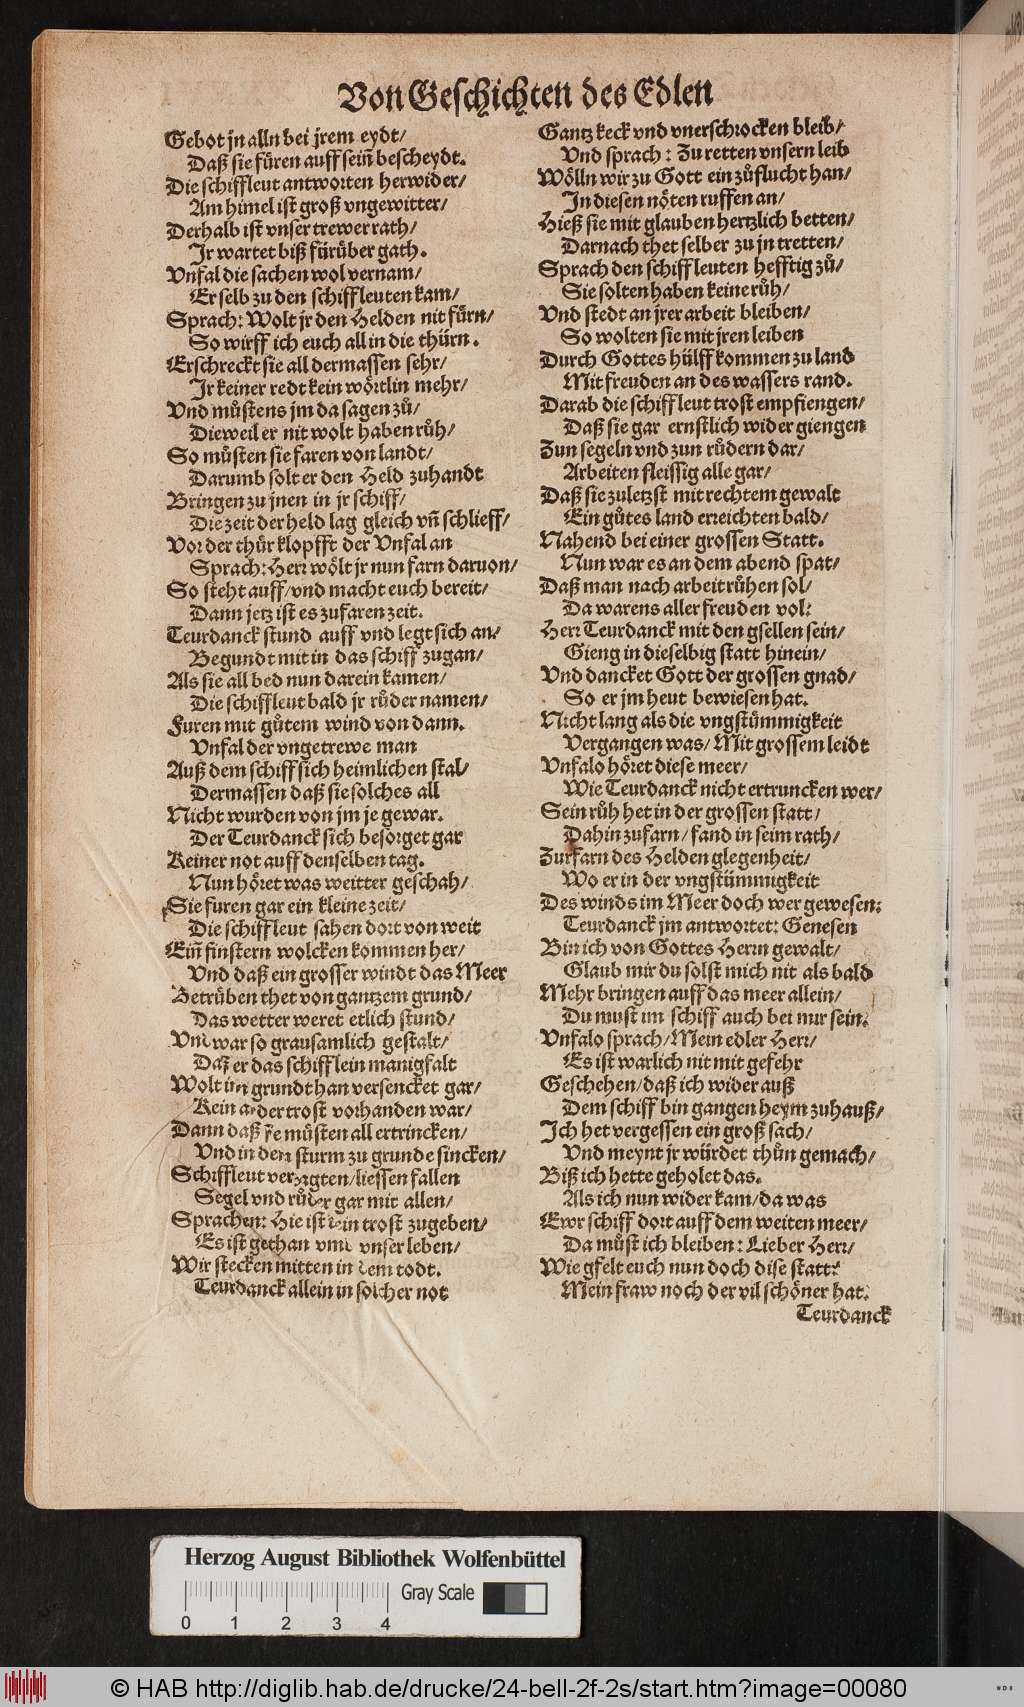 Von Geschichten des Edlen
Gebot jn alln bei jrem eydt/
Daß sie füren auff sein̄ bescheydt.
Die schiffleut antworten herwider/
Am himel ist groß vngewitter/
Derhalb ist vnser trewer rath/
Jr wartet biß fürüber gath.
Vnfal die sachen wol vernam/
Er selb zu den schiffleuten kam/
Sprach: Wolt jr den Helden nit fürn/
So wirff ich euch all in die thürn.
Erschreckt sie all dermassen sehr/
Jr keiner redt kein wörtlin mehr/
Vnd můstens jm da sagen zů/
Dieweil er nit wolt haben růh/
So můsten sie faren von landt/
Darumb solt er den Held zuhandt
Bringen zu jnen in jr schiff/
Die zeit der held lag gleich vn̄ schlieff/
Vor der thür klopfft der Vnfal an
Sprach: Herr wölt jr nun farn daruon/
So steht auff/vnd macht euch bereit/
Dann jetz ist es zufaren zeit.
Teurdanck stund auff vnd legt sich an/
Begundt mit in das schiff zugan/
Als sie all bed nun darein kamen/
Die schiffleut bald jr růder namen/
Furen mit gůtem wind von dann.
Vnfal der vngetrewe man
Auß dem schiff sich heimlichen stal/
Dermassen daß sie solches all
Nicht wurden von jm je gewar.
Der Teurdanck sich besorget gar
Keiner not auff denselben tag.
Nun höret was weitter geschah/
Sie furen gar ein kleine zeit/
Die schiffleut sahen dort von weit
Ein̄ finstern wolcken kommen her/
Vnd daß ein grosser windt das Meer
Betrüben thet von gantzem grund/
Das wetter weret etlich stund/
Vnd war so grausamlich gestalt/
Daß er das schifflein manigfalt
Wolt im grundt han versencket gar/
Kein ander trost vorhanden war/
Dann daß sie můsten all ertrincken/
Vnd in dem sturm zu grunde sincken/
Schiffleut verzagten/liessen fallen
Segel vnd růder gar mit allen/
Sprachen: Hie ist kein trost zugeben/
Es ist gethan vmb vnser leben/
Wir stecken mitten in dem todt.
Teurdanck allein in solcher not
Gantz keck vnd vnerschrocken bleib/
Vnd sprach: Zu retten vnsern leib
Wölln wir zu Gott ein zůflucht han/
In diesen nöten ruffen an/
Hieß sie mit glauben hertzlich betten/
Darnach thet selber zu jn tretten/
Sprach den schiffleuten hefftig zů/
Sie solten haben keine růh/
Vnd stedt an jrer arbeit bleiben/
So wolten sie mit jren leiben
Durch Gottes hülff kommen zu land
Mit freuden an des wassers rand.
Darab die schiffleut trost empfiengen/
Daß sie gar ernstlich wider giengen
Zun segeln vnd zun růdern dar/
Arbeiten fleissig alle gar/
Daß sie zuletzst mit rechtem gewalt
Ein gůtes land erreichten bald/
Nahend bei einer grossen Statt.
Nun war es an dem abend spat/
Daß man nach arbeit růhen sol/
Da warens aller freuden vol:
Herr Teurdanck mit den gsellen sein/
Gieng in dieselbig statt hinein/
Vnd dancket Gott der grossen gnad/
So er jm heut bewiesen hat.
Nicht lang als die vngstümmigkeit
Vergangen was/Mit grossem leidt
Vnfalo höret diese meer/
Wie Teurdanck nicht ertruncken wer/
Sein růh het in der grossen statt/
Dahin zufarn/fand in seim rath/
Zurfarn des Helden glegenheit/
Wo er in der vngstümmigkeit
Des winds im Meer doch wer gewesen:
Teurdanck jm antwortet: Genesen
Bin ich von Gottes Herrn gewalt/
Glaub mir du solst mich nit als bald
Mehr bringen auff das meer allein/
Du must im schiff auch bei mir sein.
Vnfalo sprach/Mein edler Herr/
Es ist warlich nit mit gefehr
Geschehen/daß ich wider auß
Dem schiff bin gangen heym zuhauß/
Ich het vergessen ein groß sach/
Vnd meynt jr würdet thůn gemach/
Biß ich hette geholet das.
Als ich nun wider kam/da was
Ewr schiff dort auff dem weiten meer/
Da můst ich bleiben: Lieber Herr/
Wie gfelt euch nun doch dise statt?
Mein fraw noch der vil schöner hat.
Teurdanck
Herzog August Bibliothek Wolfenbüttel
Gray Scale
0 1 2 3 4
© HAB http://diglib.hab.de/drucke/24-bell-2f-2s/start.htm?image=00080